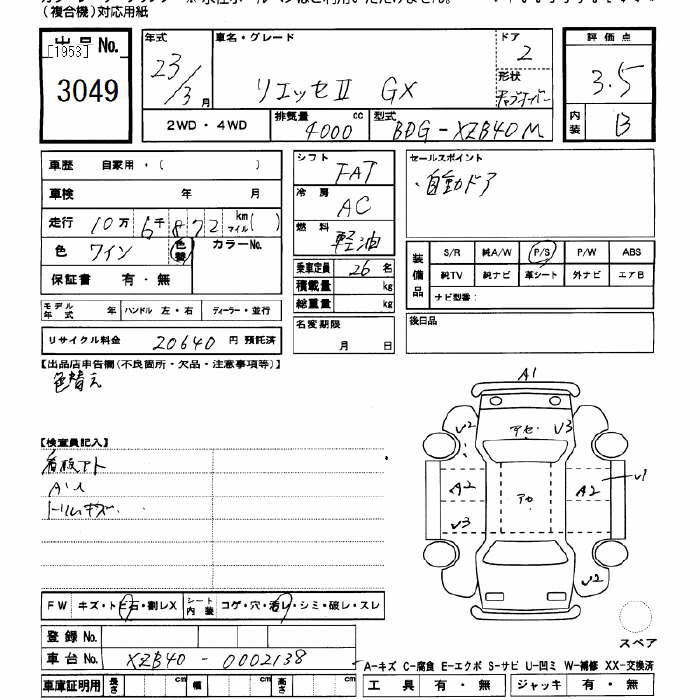 (複合機)対応用紙
出品No. [1953]
3049
年式 23/3月
車名・グレード リエッセⅡ GX
ドア 2
形状
評価点 3.5
内装 B
2WD・4WD
排気量 4000 cc
型式 BDG-XZB40M
車歴 自家用・( )
車検 年 月
走行 10万 6千 872 km マイル ( )
色 ワイン 色替 カラーNo.
保証書 有・無
モデル年式 年 ハンドル 左・右 ディーラー・並行
リサイクル料金 20640 円 預託済
シフト FAT
冷房 AC
燃料 軽油
乗車定員 26 名
積載量 kg
総重量 kg
名変期限
月 日
セールスポイント
・自動ドア
装備品
S/R 純A/W P/S P/W ABS
純TV 純ナビ 革シート 外ナビ エアB
ナビ型番:
後日品
【出品店申告欄(不良箇所・欠品・注意事項等)】
色替え
【検査員記入】
看板アト
トリムキズ
FW キズ・トビ石・割レX シート内装 コゲ・穴・汚レ・シミ・破レ・スレ
登録No.
車台No. XZB40-0002138
車庫証明用 長さ cm 幅 cm 高さ cm
A1
V2 アセ V3
A2 アセ A2 V1
V3
V2
スペア
A-キズ C-腐食 E-エクボ S-サビ U-凹ミ W-補修 XX-交換済
工具 有・無 ジャッキ 有・無